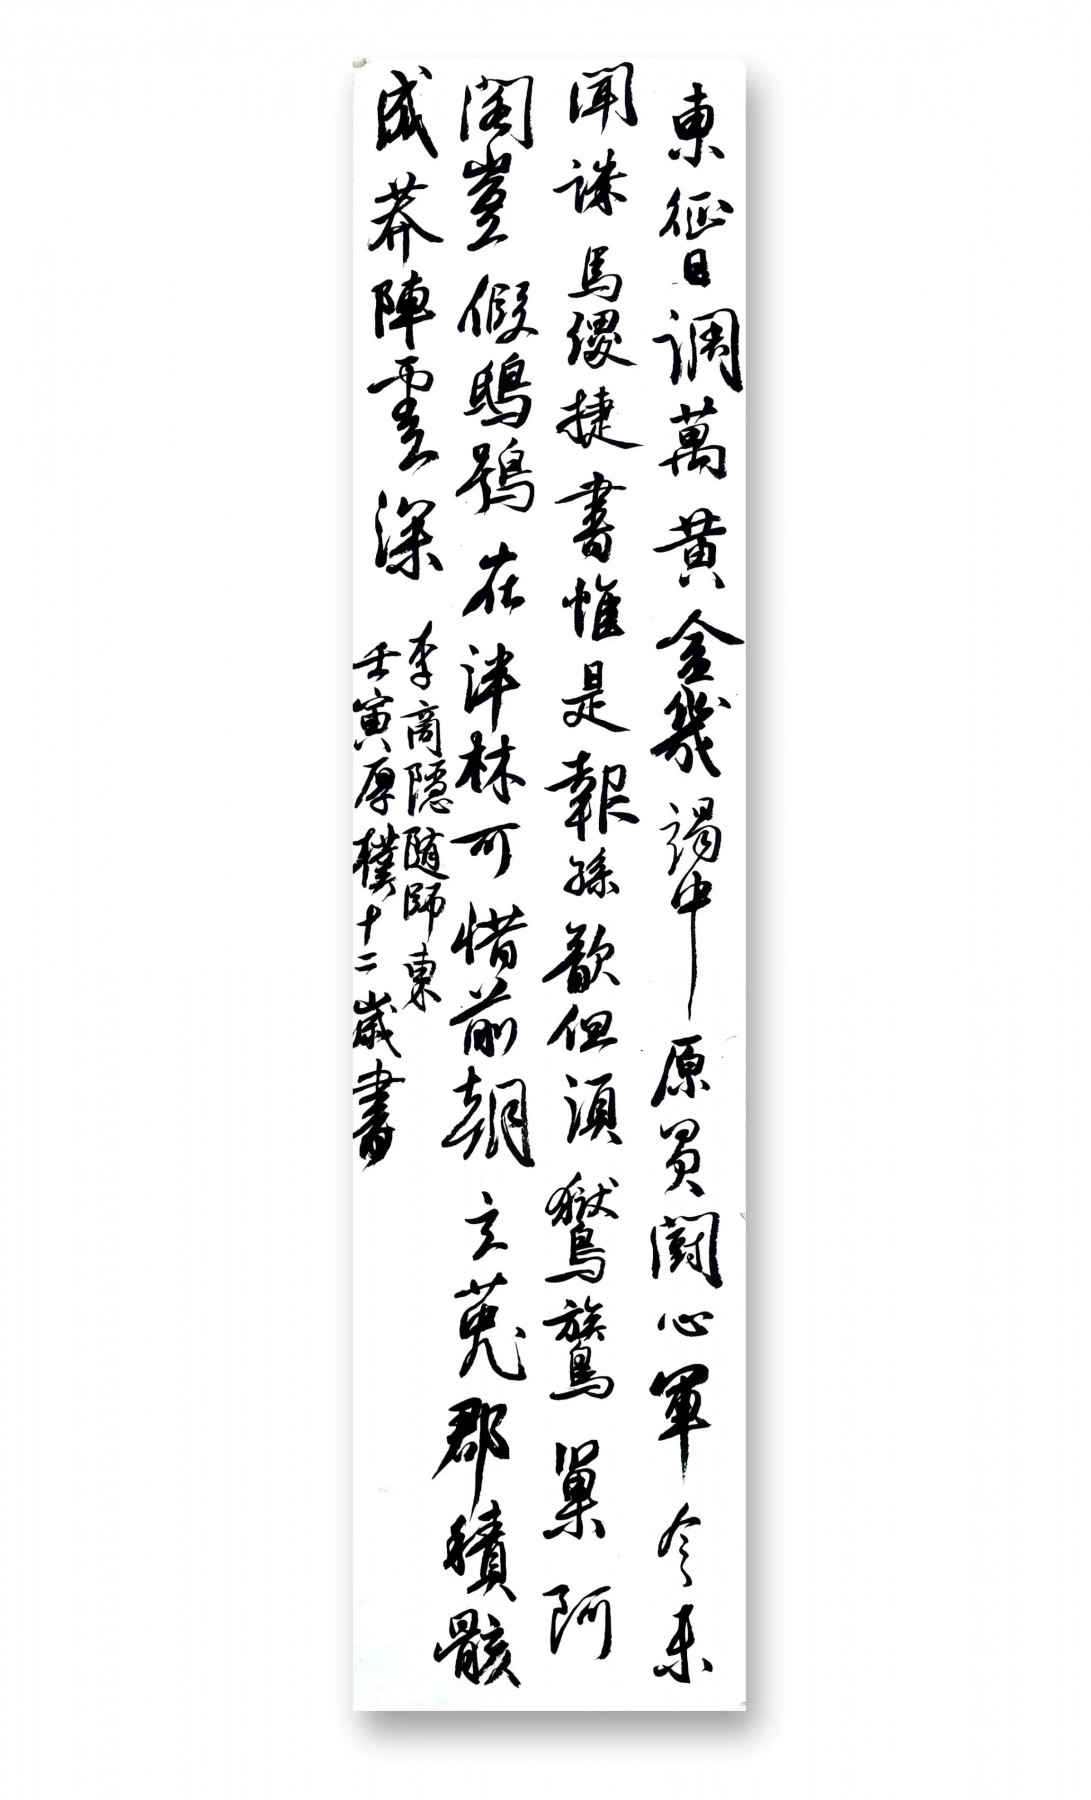 東征日調萬黄金幾竭中原買闘心軍令未
聞誅馬謖捷書惟是報孫歆但須鸑鷟巢阿
閣豈假鴟鴞在泮林可惜前朝玄菟郡積骸
成莽陣雲深
李商隱隨師東
壬寅厚樸十二歲書